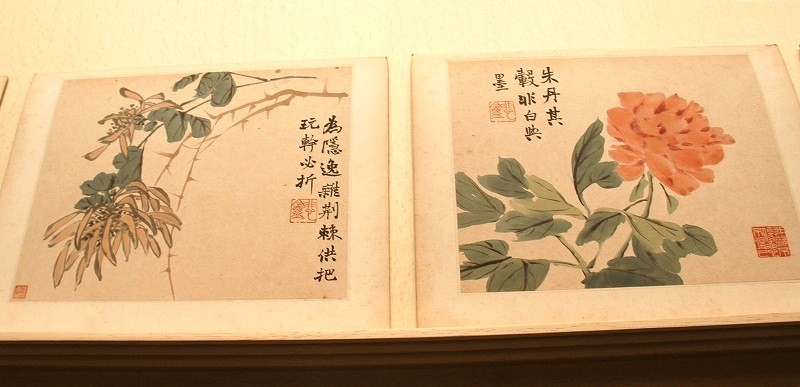 為隱逸雜荆棘供把
玩幹必折
朱丹其
轂非白與
墨